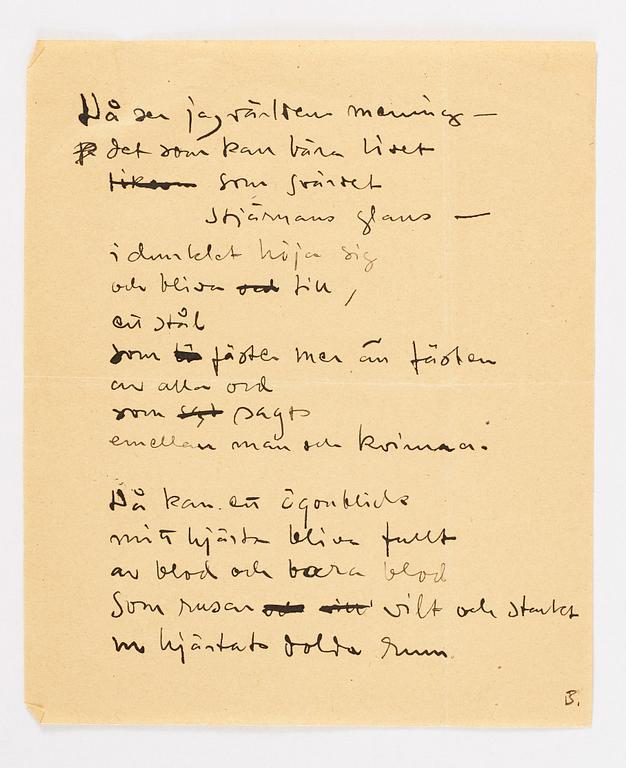 Då ser jag världens mening —
det som kan bära livet
som svärdet
stjärnans glans —
i dunklet höja sig
och bliva till,
ett stål
som fäster mer än fästen
av alla ord
som sagts
emellan man och kvinna.
Då kan ett ögonblick
mitt hjärta bliva fullt
av blod och bara blod
som rusar vilt och starkt
in hjärtats dolda rum.
B.